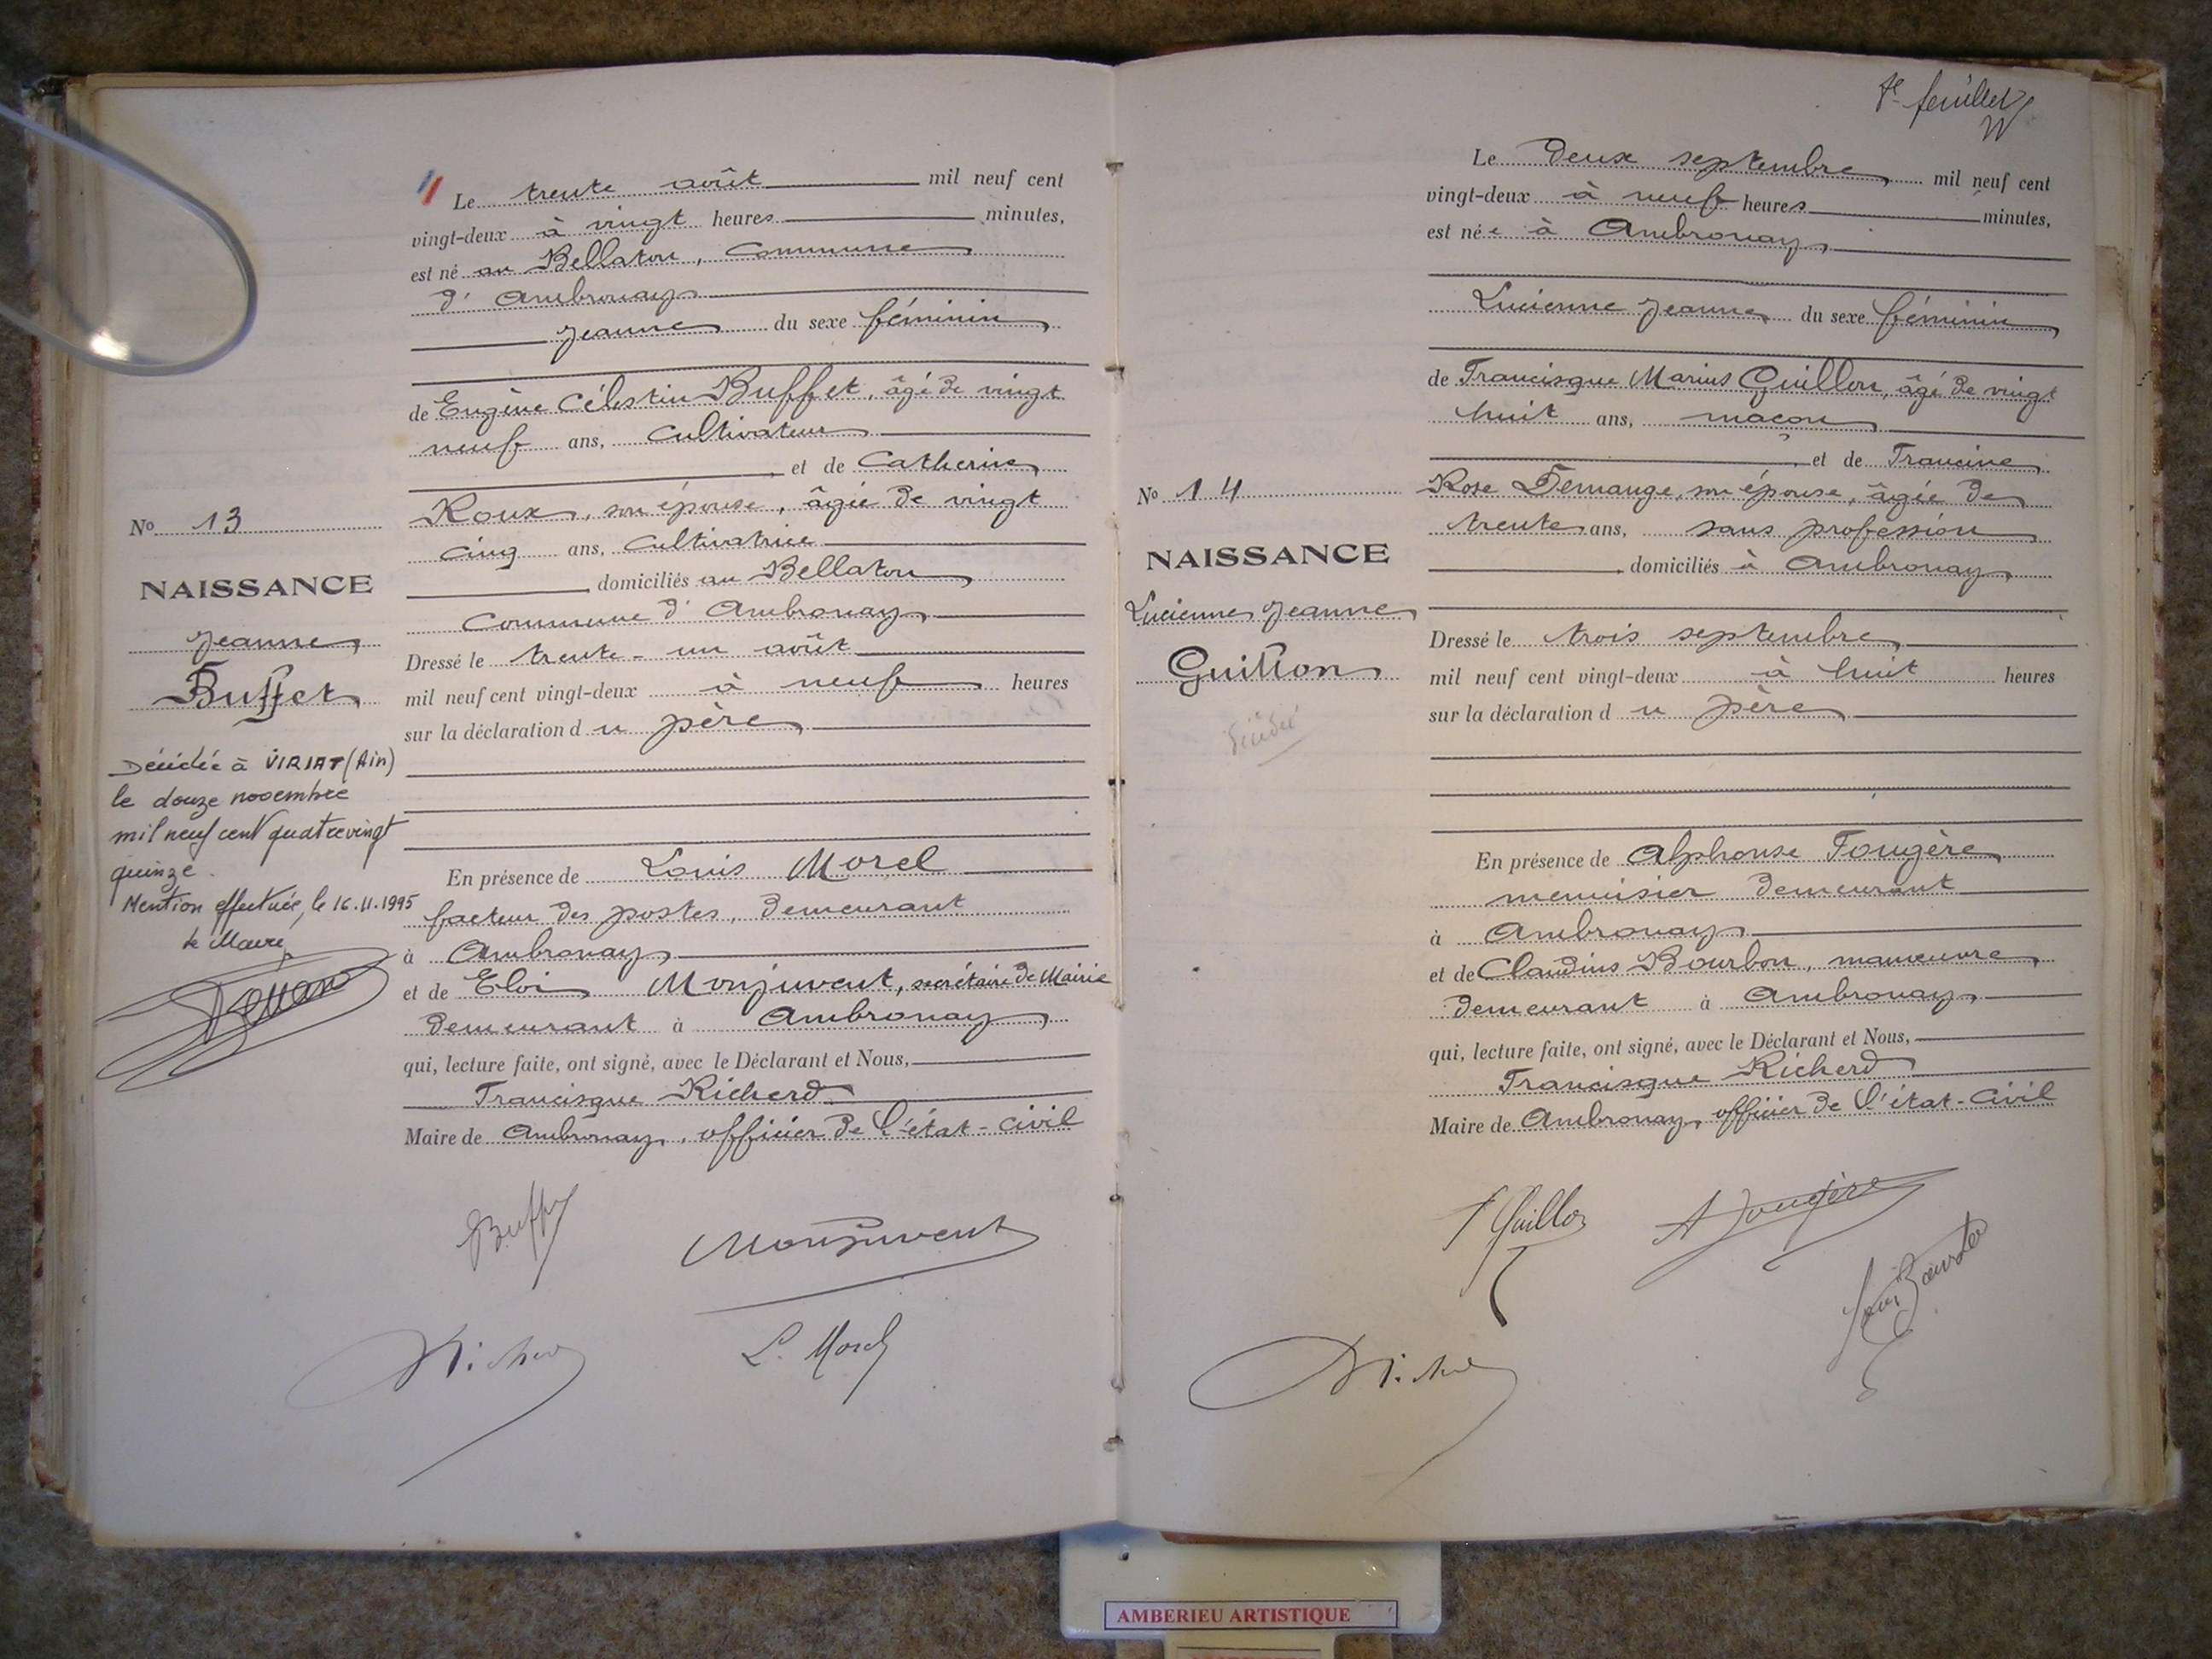 Le trente août mil neuf cent
vingt-deux à vingt heures minutes,
est né au Bellaton, Commune
d'Ambronay
Jeanne du sexe féminin
de Eugène Célestin Buffet, âgé de vingt
neuf ans, Cultivateur
et de Catherine
Roux, son épouse, âgée de vingt
cinq ans, Cultivatrice
domiciliés au Bellaton
Commune d'Ambronay
Dressé le trente-un août
mil neuf cent vingt-deux à neuf heures
sur la déclaration du père
En présence de Louis Morel
facteur des postes, demeurant
à Ambronay
et de Eloi Monjuvent, secrétaire de Mairie
demeurant à Ambronay
qui, lecture faite, ont signé, avec le Déclarant et Nous,
Francisque Richerd
Maire de Ambronay, officier de l'état-civil
No 13
NAISSANCE
Jeanne
Buffet
Décédée à VIRIAT (Ain)
le douze novembre
mil neuf cent quatrevingt
quinze.
Mention effectuée, le 16.11.1995
le Maire,
Buffet
Monjuvent
L. Morel
Richerd
7e feuillet
Le deux septembre mil neuf cent
vingt-deux à neuf heures minutes,
est née à Ambronay
Lucienne Jeanne du sexe féminin
de Francisque Marius Guillon, âgé de vingt
huit ans, maçon
et de Francine
Rose Demange, son épouse, âgée de
trente ans, sans profession
domiciliés à Ambronay
Dressé le trois septembre
mil neuf cent vingt-deux à huit heures
sur la déclaration du père
En présence de Alphonse Fougère
menuisier demeurant
à Ambronay
et de Claudius Bourbon, manœuvre
demeurant à Ambronay
qui, lecture faite, ont signé, avec le Déclarant et Nous,
Francisque Richerd
Maire de Ambronay, officier de l'état-civil
No 14
NAISSANCE
Lucienne Jeanne
Guillon
Décédée
F Guillon
A Fougère
Richerd
AMBERIEU ARTISTIQUE